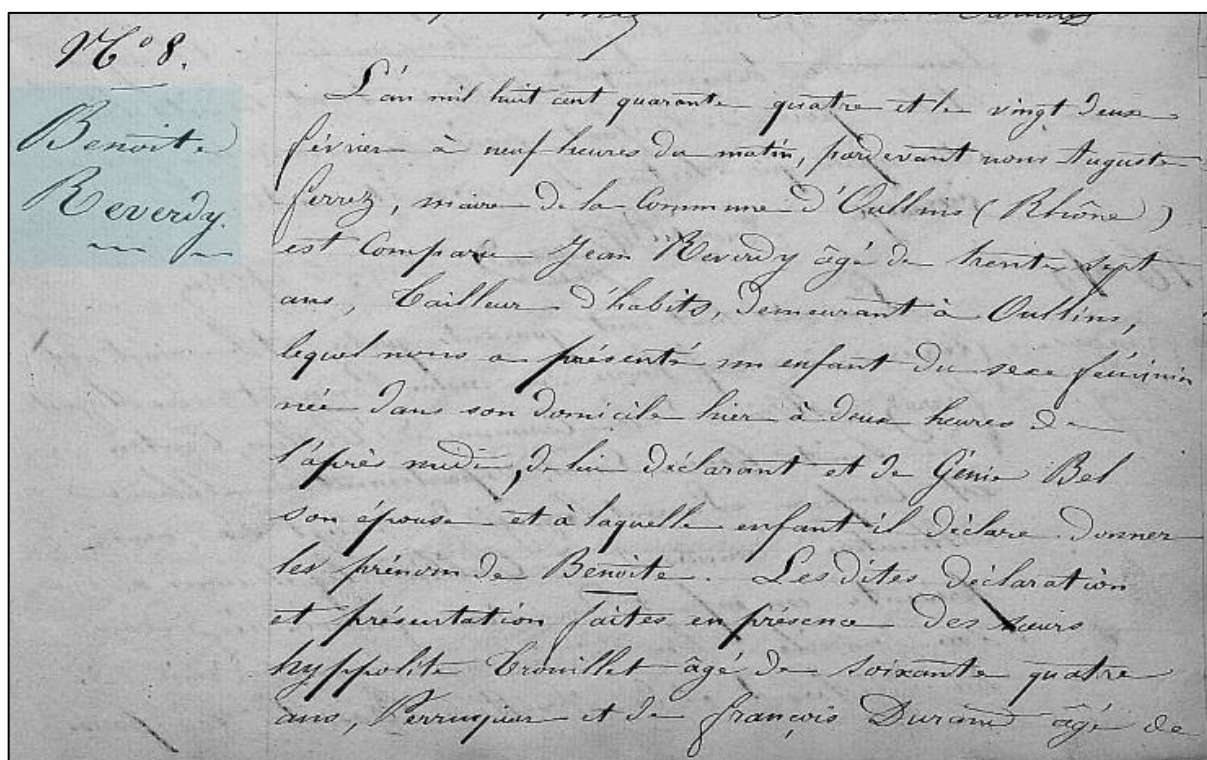 N° 8.
Benoite
Reverdy.
L'an mil huit cent quarante quatre et le vingt deux
février à neuf heures du matin, pardevant nous Auguste
ferrez, maire de la Commune d'Oullins (Rhône)
est Comparu Jean Reverdy âgé de trente sept
ans, Tailleur d'habits, demeurant à Oullins,
lequel nous a présenté un enfant du sexe féminin
née dans son domicile hier à deux heures de
l'après midi, de lui déclarant et de Génie Bel
son épouse et à laquelle enfant il déclare donner
les prénom de Benoite. Les dites déclaration
et présentation faites en présence des sieurs
hyppolite Trouillet âgé de soixante quatre
ans, Perruquier et de françois Durand âgé de